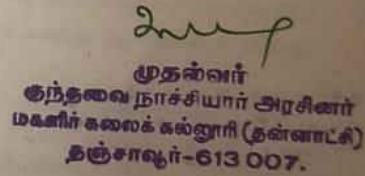 முதல்வர்
குந்தவை நாச்சியார் அரசினர்
மகளிர் கலைக் கல்லூரி (தன்னாட்சி)
தஞ்சாவூர்-613 007.